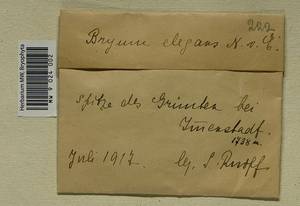 222
Bryum elegans N. v. E.
Spitze des Grünten bei
Immenstadt.
1738 m.
Juli 1917. lg. S. Ruoff
Herbarium MW, Bryophyta
MW 9 024 002